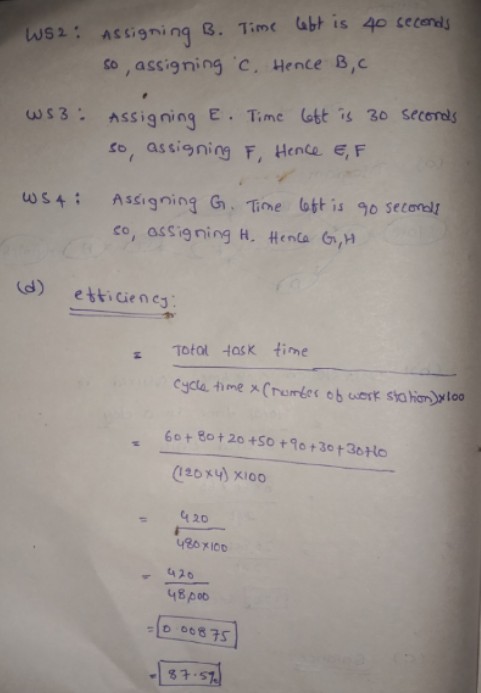 WS2: Assigning B. Time left is 40 seconds
so, assigning C. Hence B,C
WS3: Assigning E. Time left is 30 seconds
so, assigning F, Hence E,F
WS4: Assigning G. Time left is 90 seconds
so, assigning H. Hence G,H
(d) efficiency:
= Total task time
cycle time x (number of work station) x 100
= 60+80+20+50+90+30+30+60
(120x4) x100
= 420
480x100
= 420
48,000
= 0.00875
= 87.5%